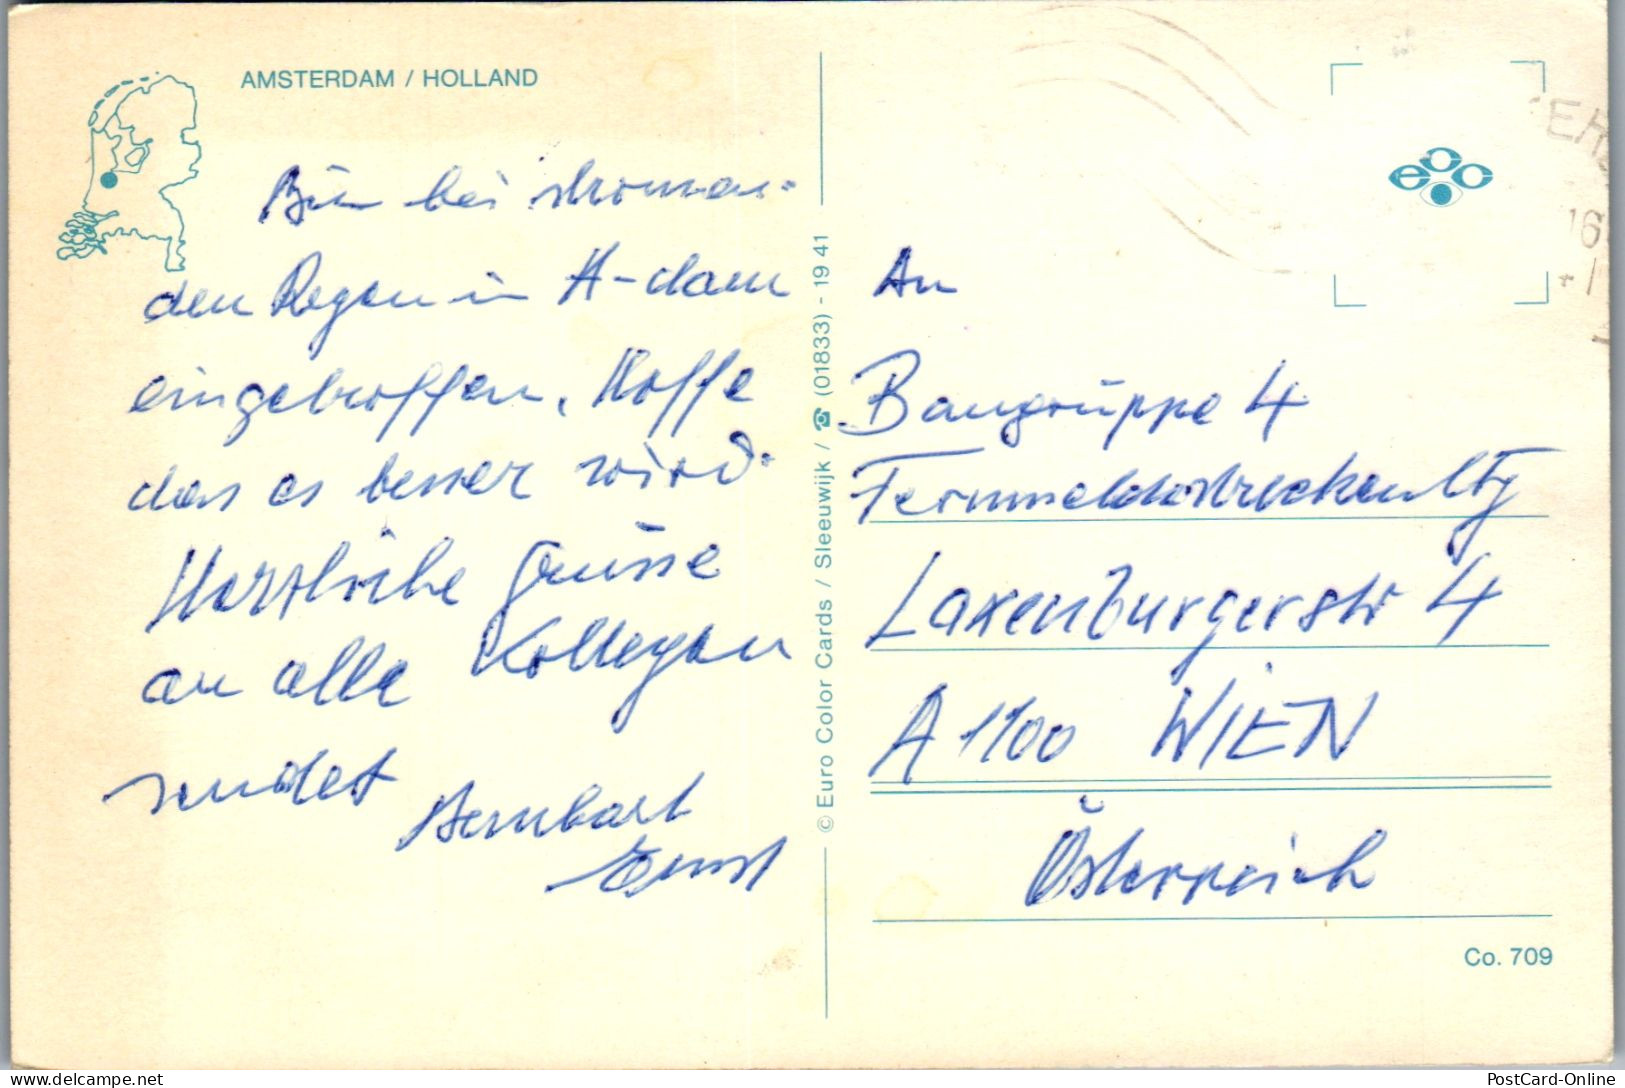 AMSTERDAM / HOLLAND
Bin bei strömen-
den Regen in A-dam
eingetroffen. Hoffe
das es besser wird.
Herzliche Grüsse
an alle Kollegen
sendet
Bernhart
Ernst
© Euro Color Cards / Sleeuwijk / ☎ (01833) - 19 41
eacc
16
An
Baugruppe 4
Fernmeldestrecken
Laxenburgerstr 4
A 1100 WIEN
Österreich
Co. 709
delcampe.net
PostCard-Online